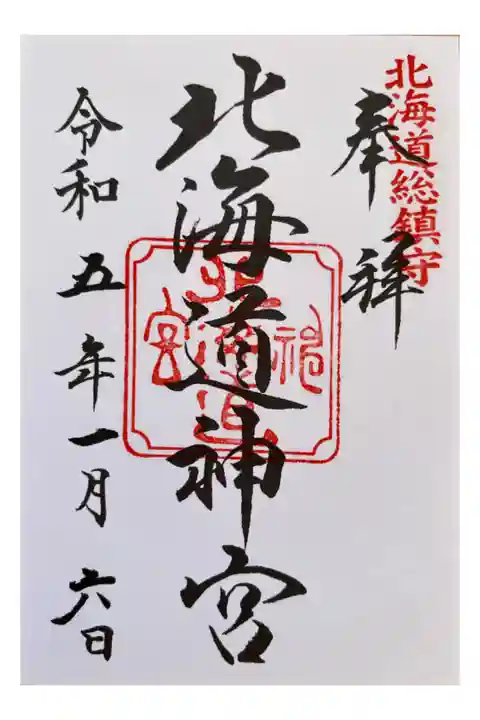 北海道総鎮守
奉拝
北海道神宮
北海道神宮
令和五年一月六日